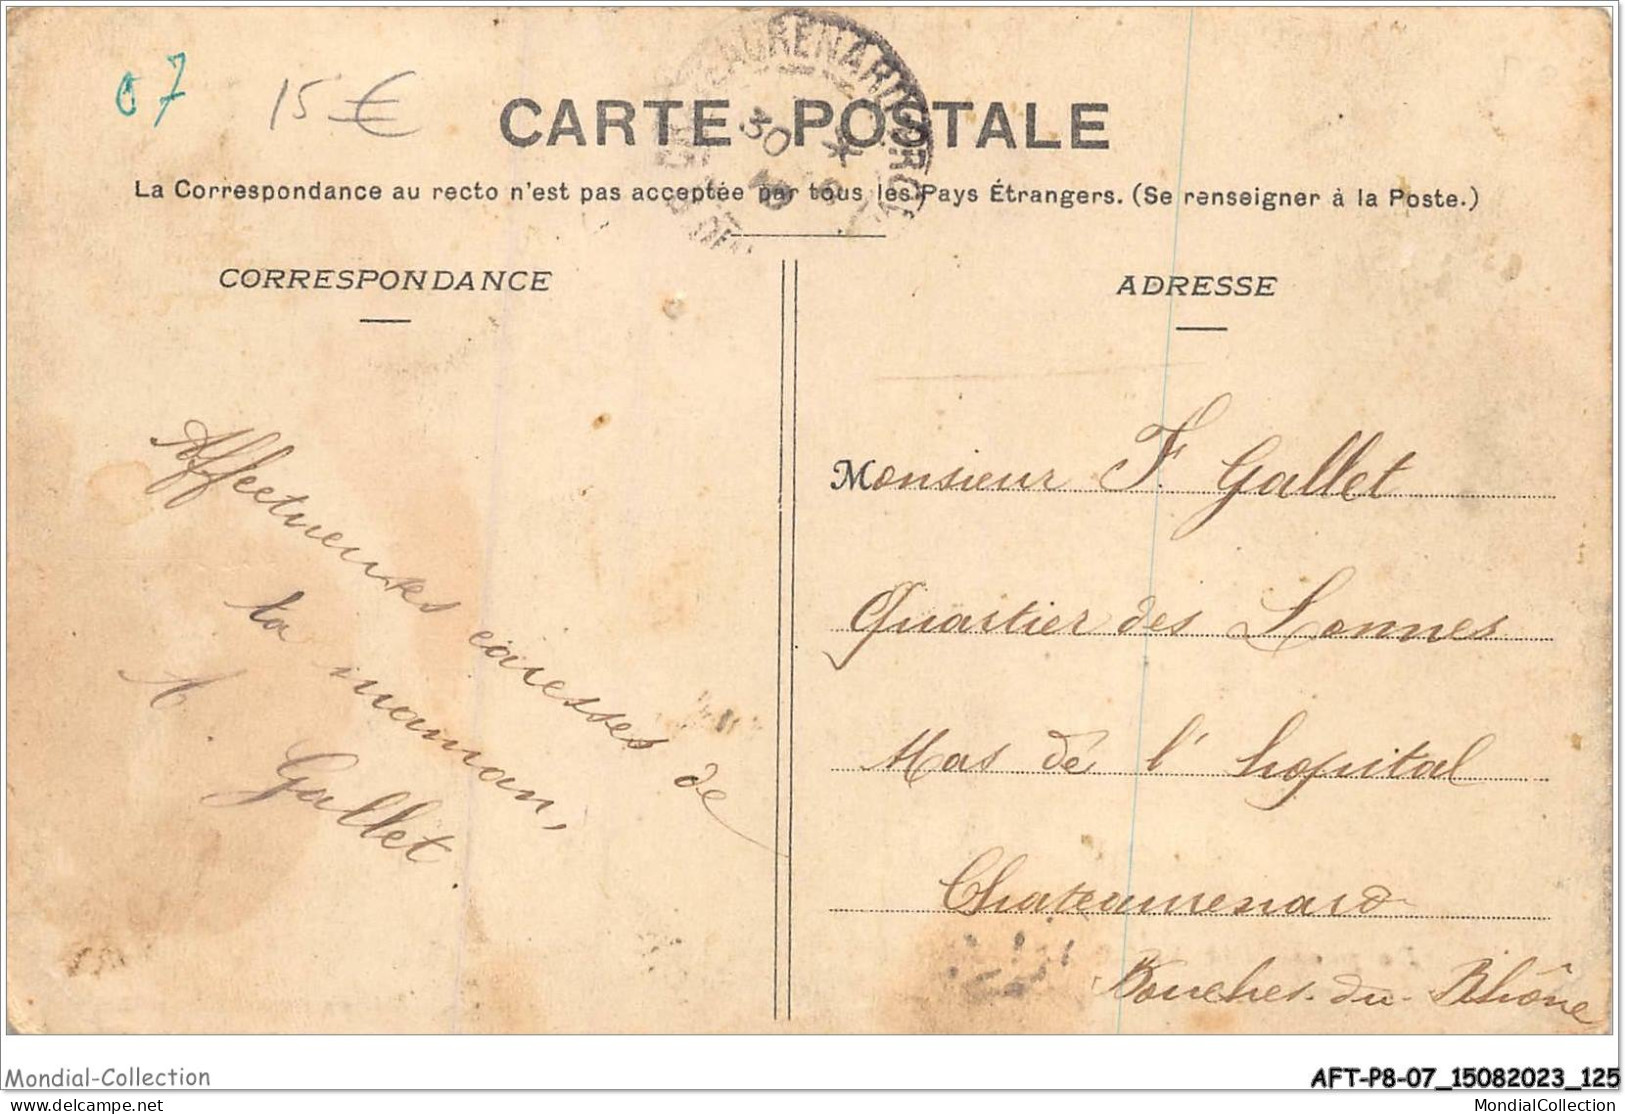 07
15 €
CARTE POSTALE
30
La Correspondance au recto n'est pas acceptée par tous les Pays Étrangers. (Se renseigner à la Poste.)
CORRESPONDANCE
Affectueuses caresses de
ta maman,
A. Gallet.
ADRESSE
Monsieur F. Gallet
Quartier des Lonnes
Mas de l'hopital
Chateaurenard
Bouches-du-Rhône
Mondial-Collection
AFT-P8-07_15082023_125
delcampe.net
MondialCollection